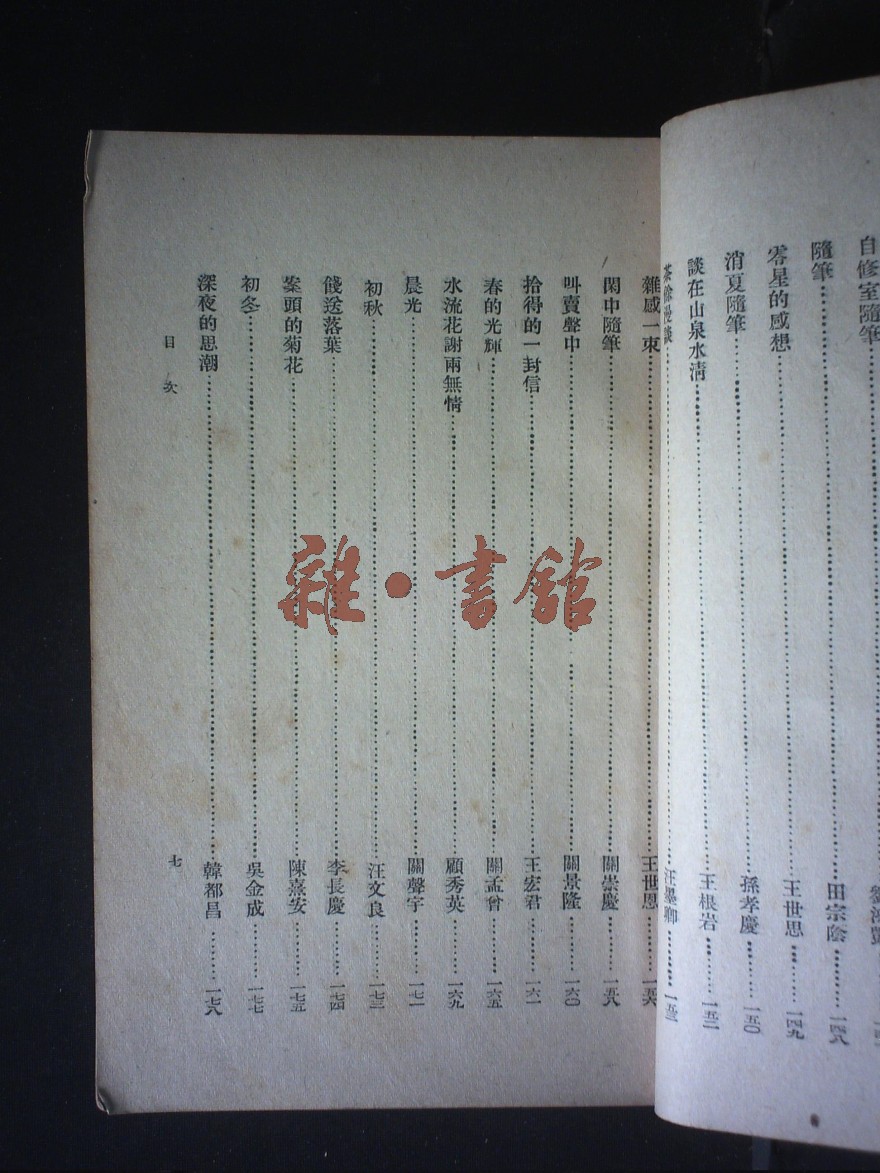 自修室隨筆
隨筆……田宗陰……一四八
零星的感想……王世思……一四九
消夏隨筆……孫孝慶……一五〇
談在山泉水清……王根岩……一五二
茶餘漫談……汪墨卿……一五三
雜感一束……王世恩……一五六
閑中隨筆……關崇慶……一五八
叫賣聲中……關景隆……一六〇
拾得的一封信……王宏君……一六一
春的光輝……關孟曾……一六五
水流花謝兩無情……顧秀英……一六九
晨光……關聲宇……一七一
初秋……汪文良……一七三
餞送落葉……李長慶……一七四
案頭的菊花……陳熹安……一七五
初冬……吳金成……一七七
深夜的思潮……韓都昌……一七八
目次
七
雜·書館